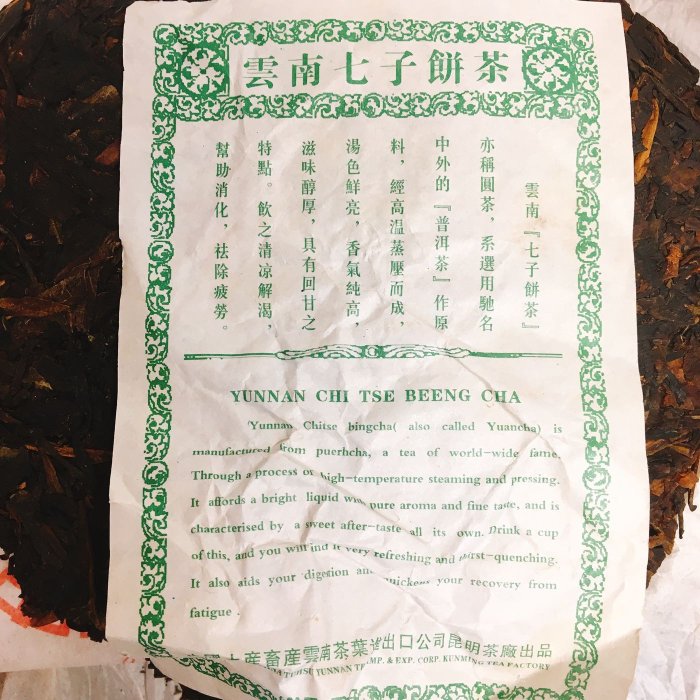 雲南七子餅茶
雲南『七子餅茶』
亦稱圓茶，系選用馳名
中外的『普洱茶』作原
料，經高温蒸壓而成，
湯色鮮亮，香氣純高，
滋味醇厚，具有回甘之
特點。飲之清凉解渴，
幫助消化，祛除疲勞。
YUNNAN CHI TSE BEENG CHA
Yunnan Chitse bingcha( also called Yuancha) is
manufactured from puerhcha, a tea of world-wide fame.
Through a process of high-temperature steaming and pressing.
It affords a bright liquid with pure aroma and fine taste, and is
characterised by a sweet after-taste all its own. Drink a cup
of this, and you will ind it very refreshing and thirst-quenching.
It also aids your digestion and quickens your recovery from
fatigue .
土產畜產雲南茶葉進出口公司昆明茶廠出品
YUNNAN IMP. & EXP. CORP. KUNMING TEA FACTORY